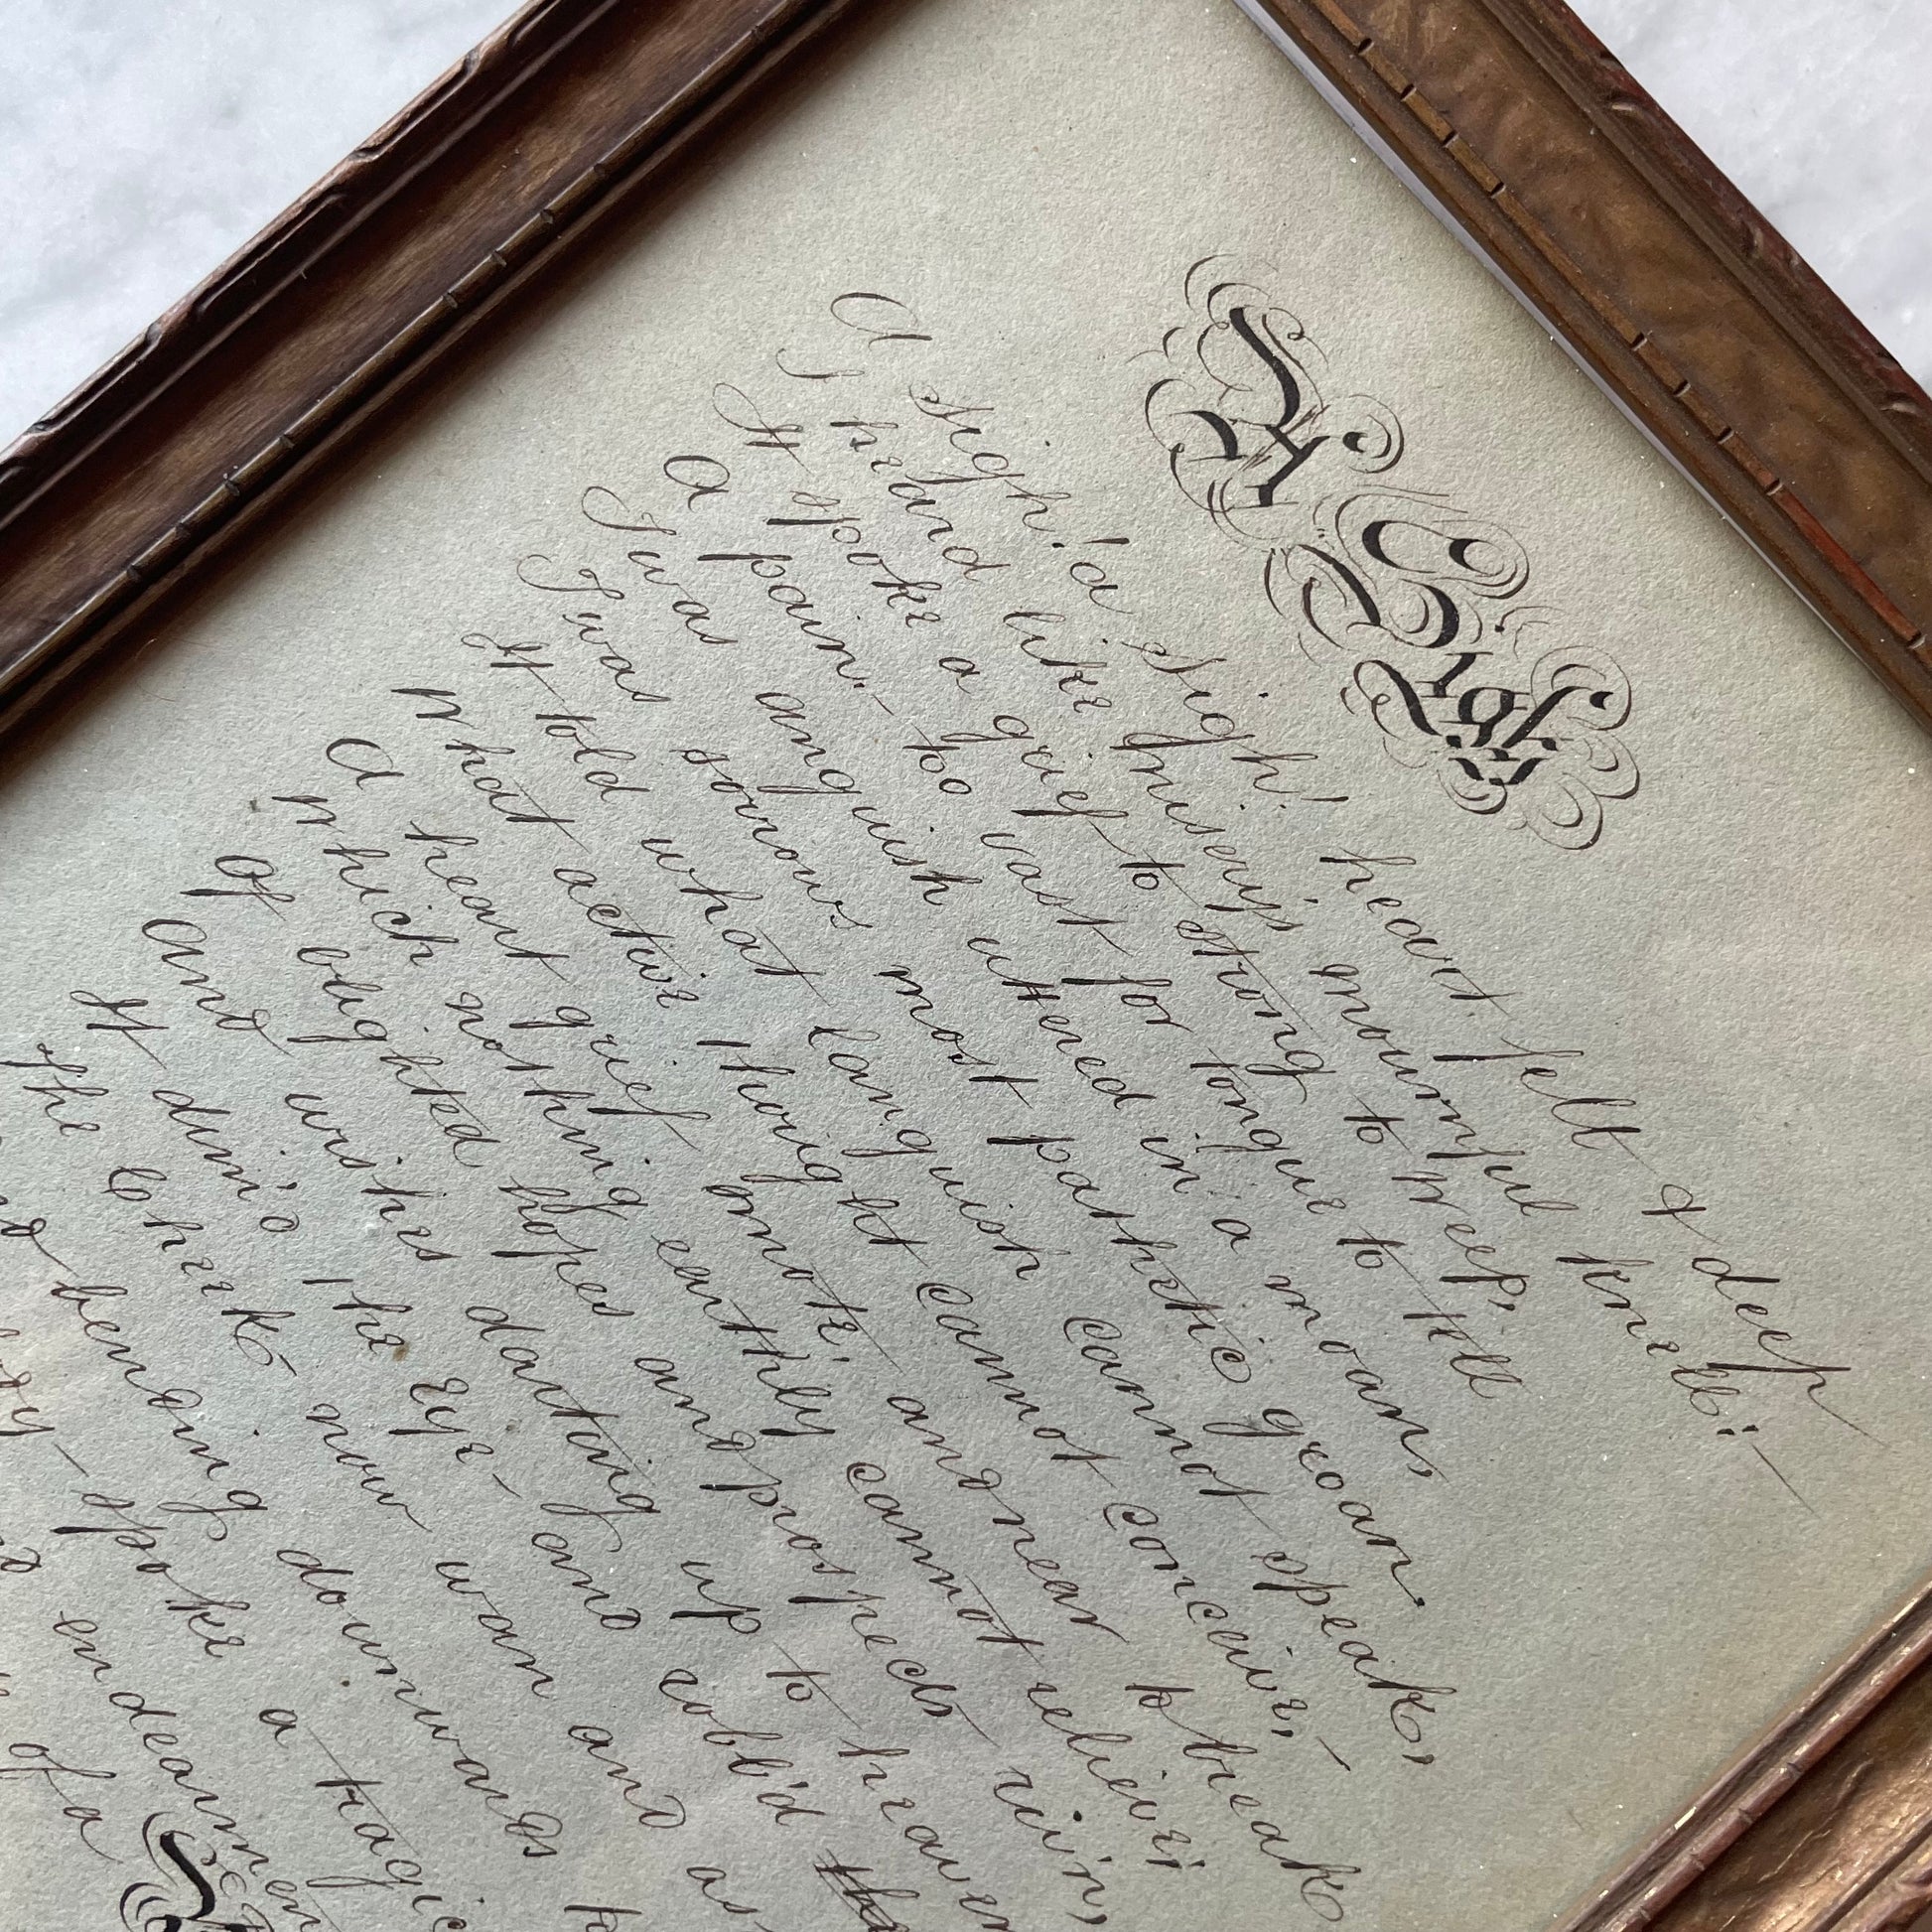 A sigh! a sigh! heart felt & deep
I heard like misery's mournful knell;—
It spoke a grief to strong to weep,
A pain— too vast for tongue to tell
Twas anguish uttered in a moan,
Twas sorrows most pathetic groan.
It told what languish cannot speak,
What active thought cannot conceive,—
A heart grief smote, and near to break
Which nothing earthly cannot relieve;
Of blighted hopes and prospects
And wishes darting up to heaven
It dim'd the Eye— and robb'd the
The Cheek now wan and as
bending downwards
spoke a tragic
endearmen
of a